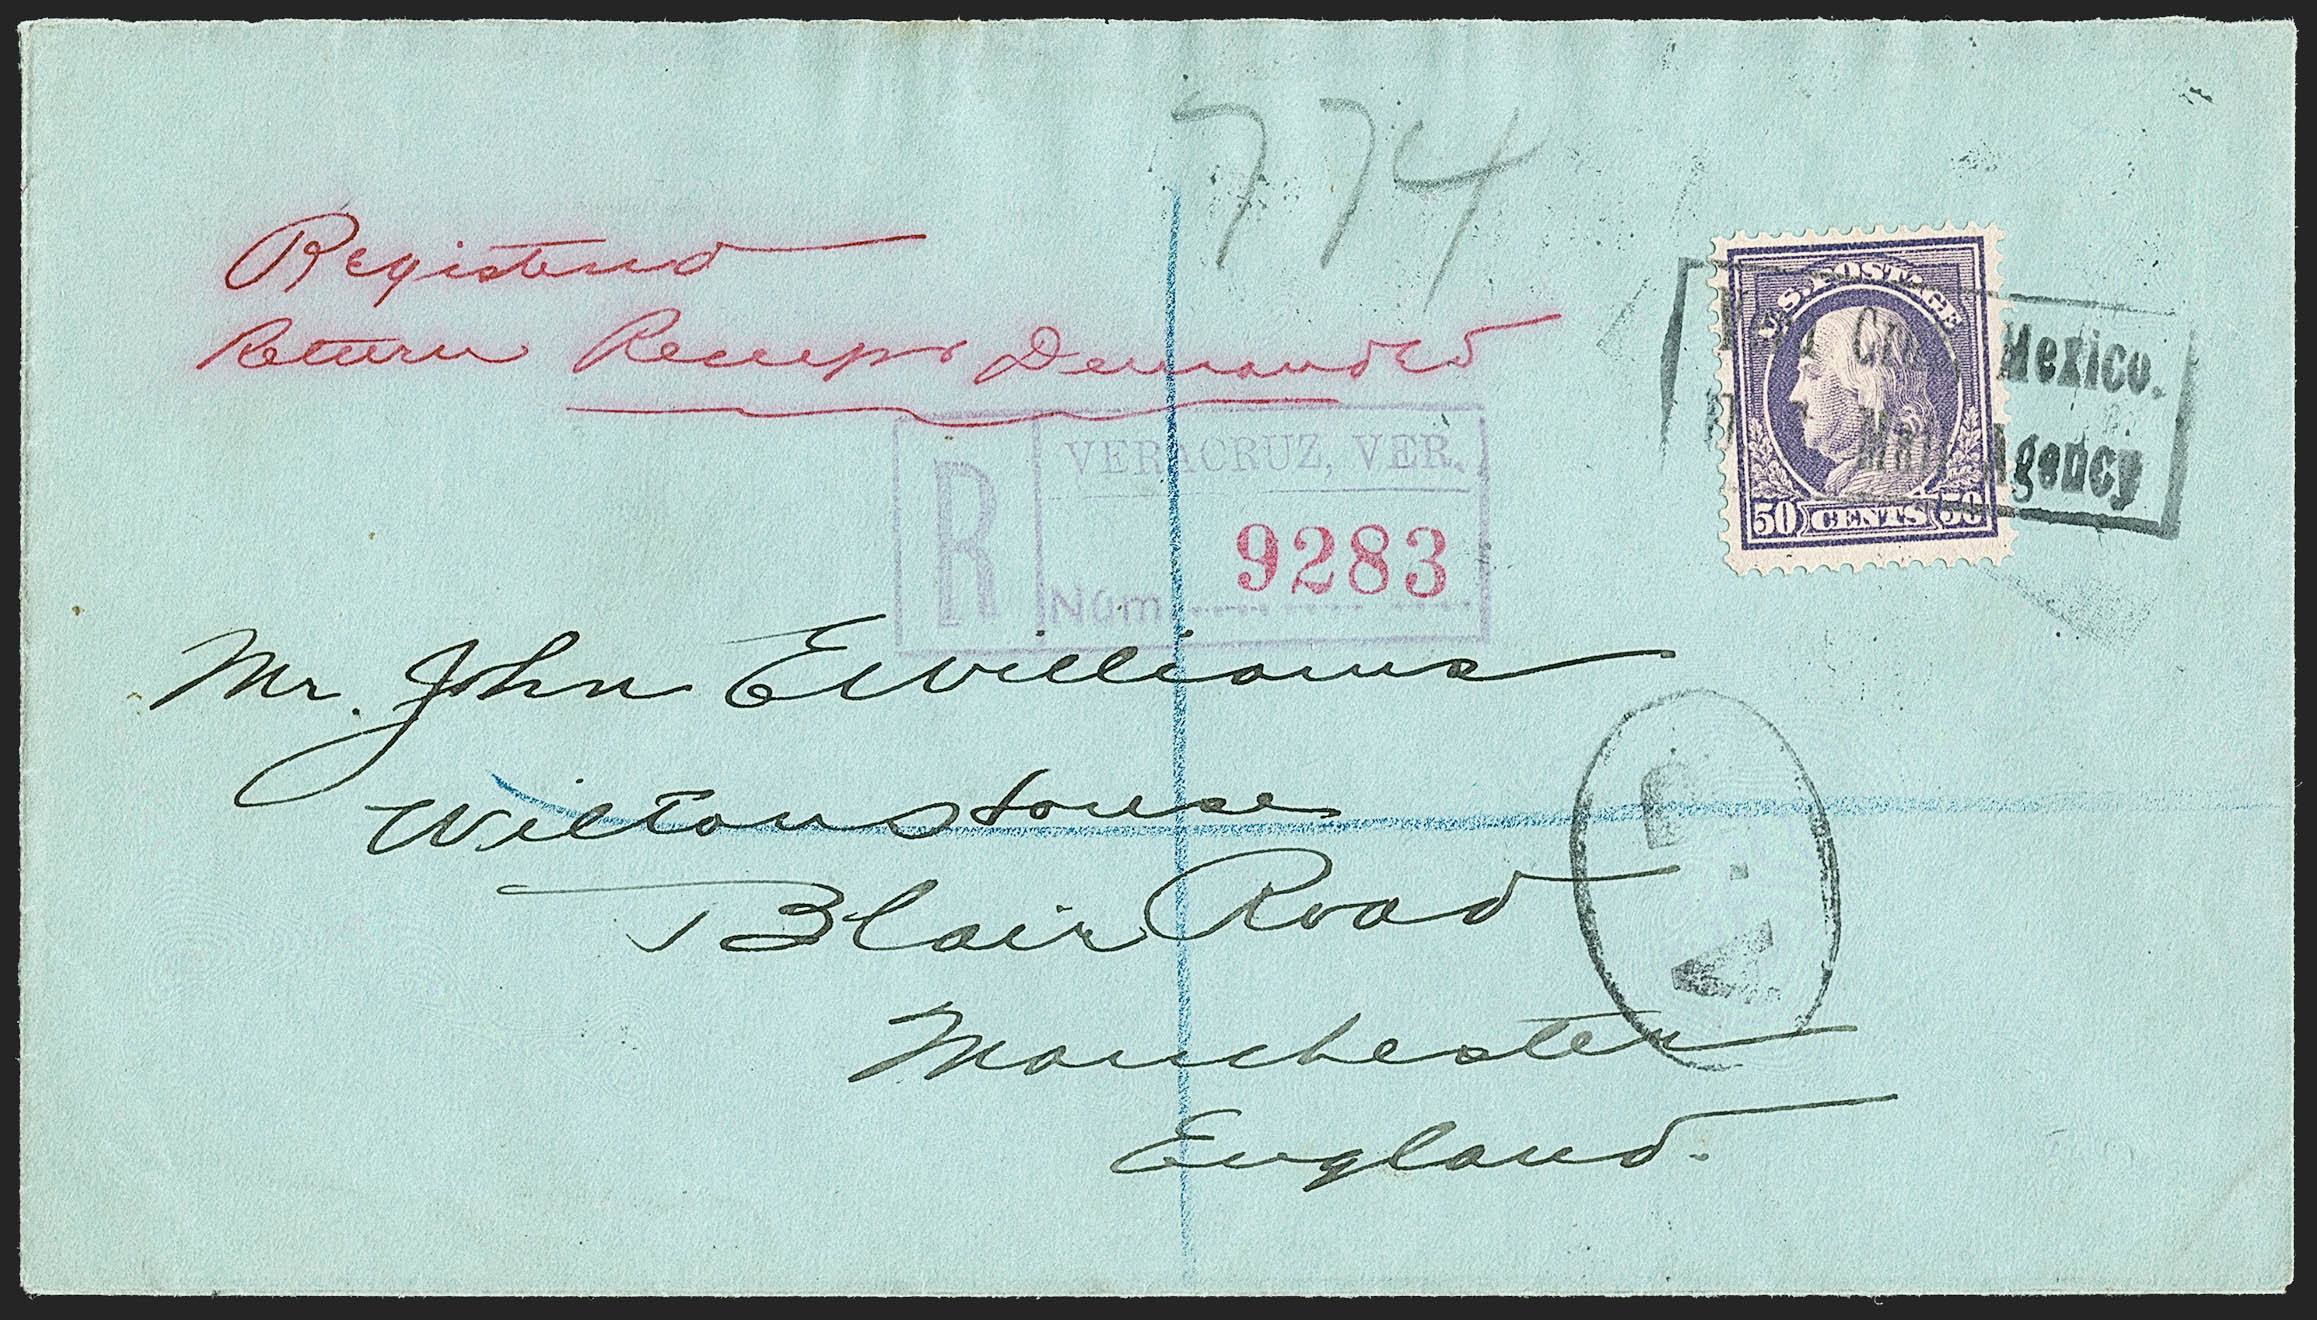 774
Registered
Return Receipt Demanded
U.S. POSTAGE
50 CENTS 50
Vera Cruz, Mexico.
U. S. Mail Agency
R
VERACRUZ, VER.
Num. 9283
Mr. John E Williams
Wilton House
Blair Road
Manchester
England.